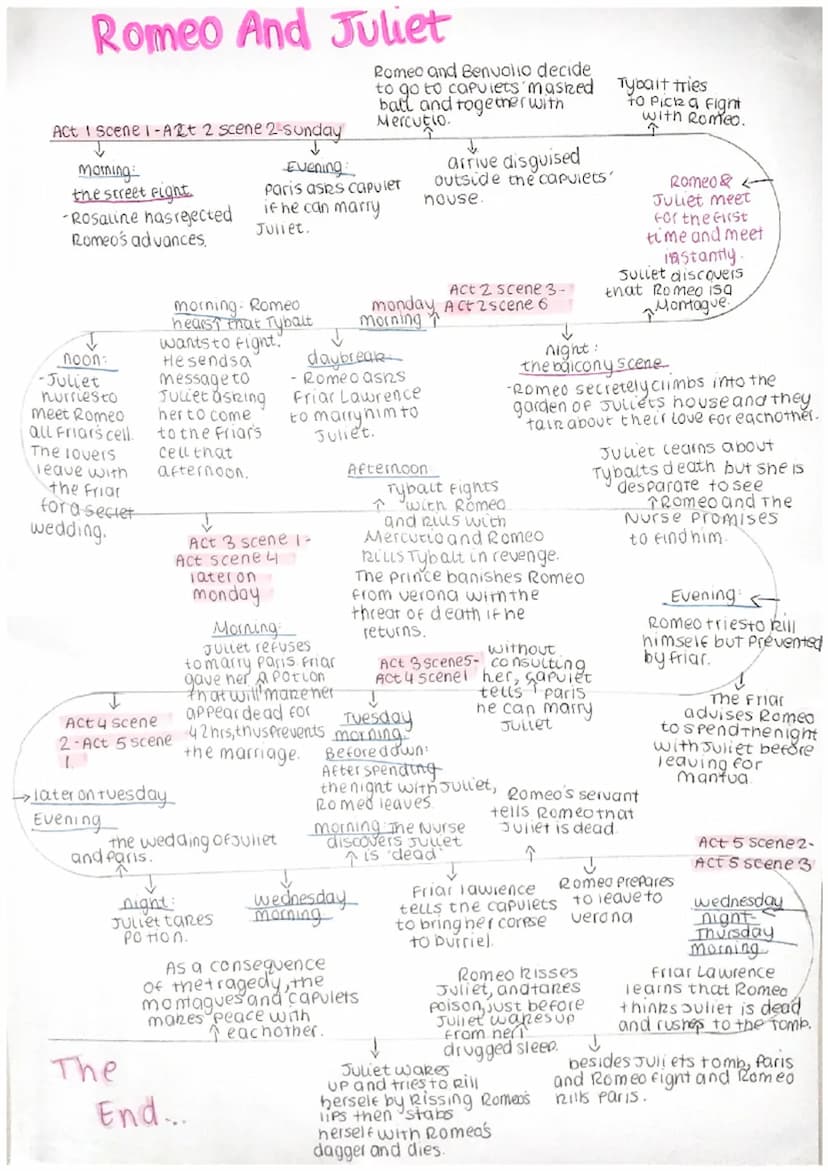 Romeo And Juliet
Act 1 Scene 1 - Act 2 Scene 2 - Sunday
Morning:
the street fight.
- Rosaline has rejected
Romeo's advances.
Evening:
Paris asks capulet
if he can marry
Juliet.
Romeo and Benvolio decide
to go to capulets' masked
ball and together with
Mercutio.
arrive disguised
outside the capulets'
house.
Tybalt tries
to pick a fight
with Romeo.
Romeo &
Juliet meet
for the first
time and meet
instantly.
Juliet discovers
that Romeo is a
Montague.
night:
the balcony scene
- Romeo secretly climbs into the
garden of Juliets house and they
talk about their love for eachother.
Act 2 Scene 3-
Act 2 scene 6
monday
morning
daybreak
- Romeo asks
Friar Lawrence
to marry him to
Juliet.
morning: Romeo
hears that Tybalt
wants to fight.
He sends a
message to
Juliet asking
her to come
to the Friar's
cell that
afternoon.
noon:
- Juliet
hurries to
meet Romeo
all Friar's cell.
The lovers
leave with
the Friar
for a secret
wedding.
Act 3 scene 1-
Act scene 4
later on
monday
Afternoon
Tybalt fights
with Romeo
and kills with
Mercutio and Romeo
kills Tybalt in revenge.
The Prince banishes Romeo
from verona with the
threat of death if he
returns.
Juliet learns about
Tybalts death but she is
desparate to see
Romeo and The
Nurse promises
to find him.
Evening:
Romeo tries to kill
himself but prevented
by friar.
The Friar
advises Romeo
to spend the night
with Juliet before
leaving for
mantua.
without
consulting
her, capulet
tells paris
he can marry
Juliet
Act 3 scene 5-
Act 4 scene 1
Tuesday
morning
Before down:
After spending
the night with Juliet,
Romeo leaves.
Morning:
Juliet refuses
to marry Paris. Friar
gave her a potion
that will make her
appear dead for
42hrs, thus prevents
the marriage.
Act 4 scene
2 - Act 5 scene
1.
later on Tuesday
Evening
the wedding of Juliet
and Paris.
night:
Juliet takes
potion.
Wednesday
morning
morning: The Nurse
discovers Juliet
is 'dead'
Friar lawrence
tells the capulets
to bring her corpse
to burriel.
Romeo's servant
tells Romeo that
Juliet is dead.
Romeo Prepares
to leave to
verona
Act 5 scene 2-
Act 5 scene 3
wednesday
night-
Thursday
morning
Friar Lawrence
learns that Romeo
thinks Juliet is dead
and rushes to the tomb.
besides Juliets tomb, Paris
and Romeo fight and Romeo
kills Paris.
Romeo kisses
Juliet, and takes
poison, just before
Juliet wakes up
from her
drugged sleep.
Juliet wakes
up and tries to kill
herself by kissing Romeo's
lips then stabs
herself with Romeo's
dagger and dies.
As a consequence
of the tragedy, the
montagues and capulets
makes peace with
eachother.
The
End...